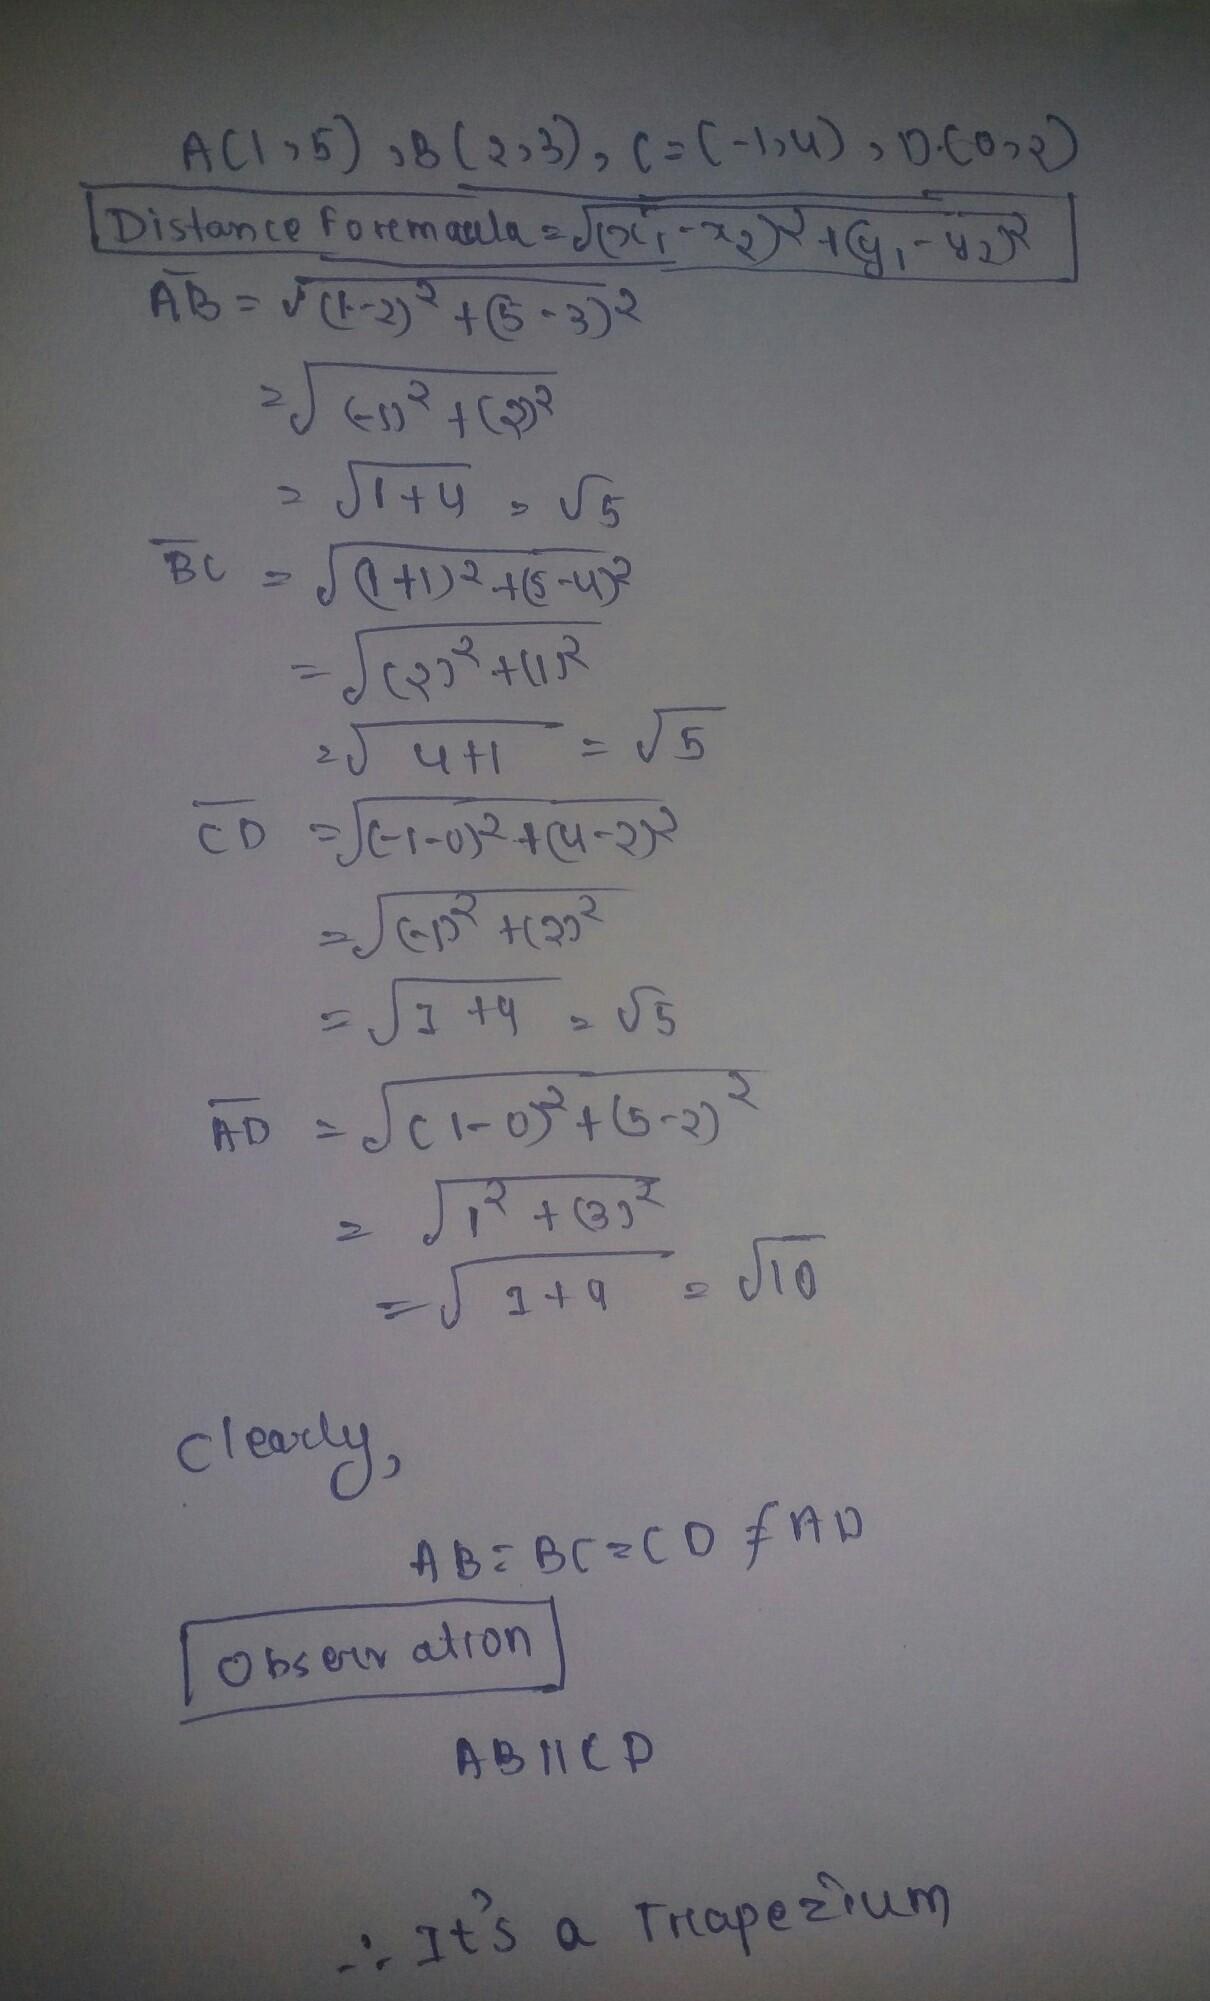 A(1,5), B(2,3), C=(-1,4), D.(0,2)
Distance Foremaula = √(x₁-x₂)² + (y₁-y₂)²
AB = √(1-2)² + (5-3)²
= √(-1)² + (2)²
= √1+4 = √5
BC = √(1+1)² + (5-4)²
= √(2)² + (1)²
= √4+1 = √5
CD = √(-1-0)² + (4-2)²
= √(-1)² + (2)²
= √1+4 = √5
AD = √(1-0)² + (5-2)²
= √1² + (3)²
= √1+9 = √10
Clearly,
AB = BC = CD ≠ AD
Observation
AB || CD
∴ It's a Trapezium